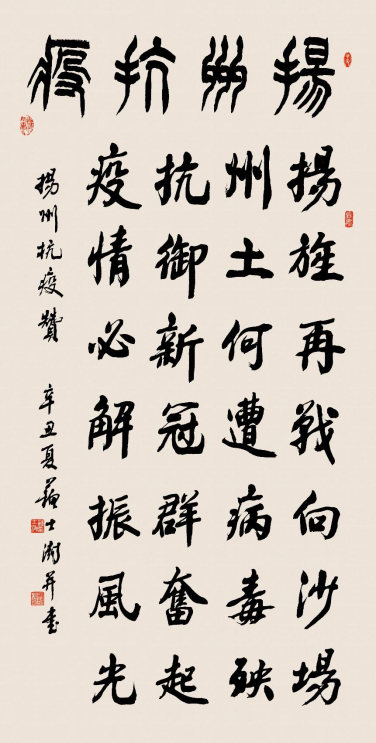 揚州抗疫
揚旌再戰向沙場
州土何遭病毒殃
抗御新冠群奮起
疫情必解振風光
揚州抗疫贊 辛丑夏蘇士澍并書